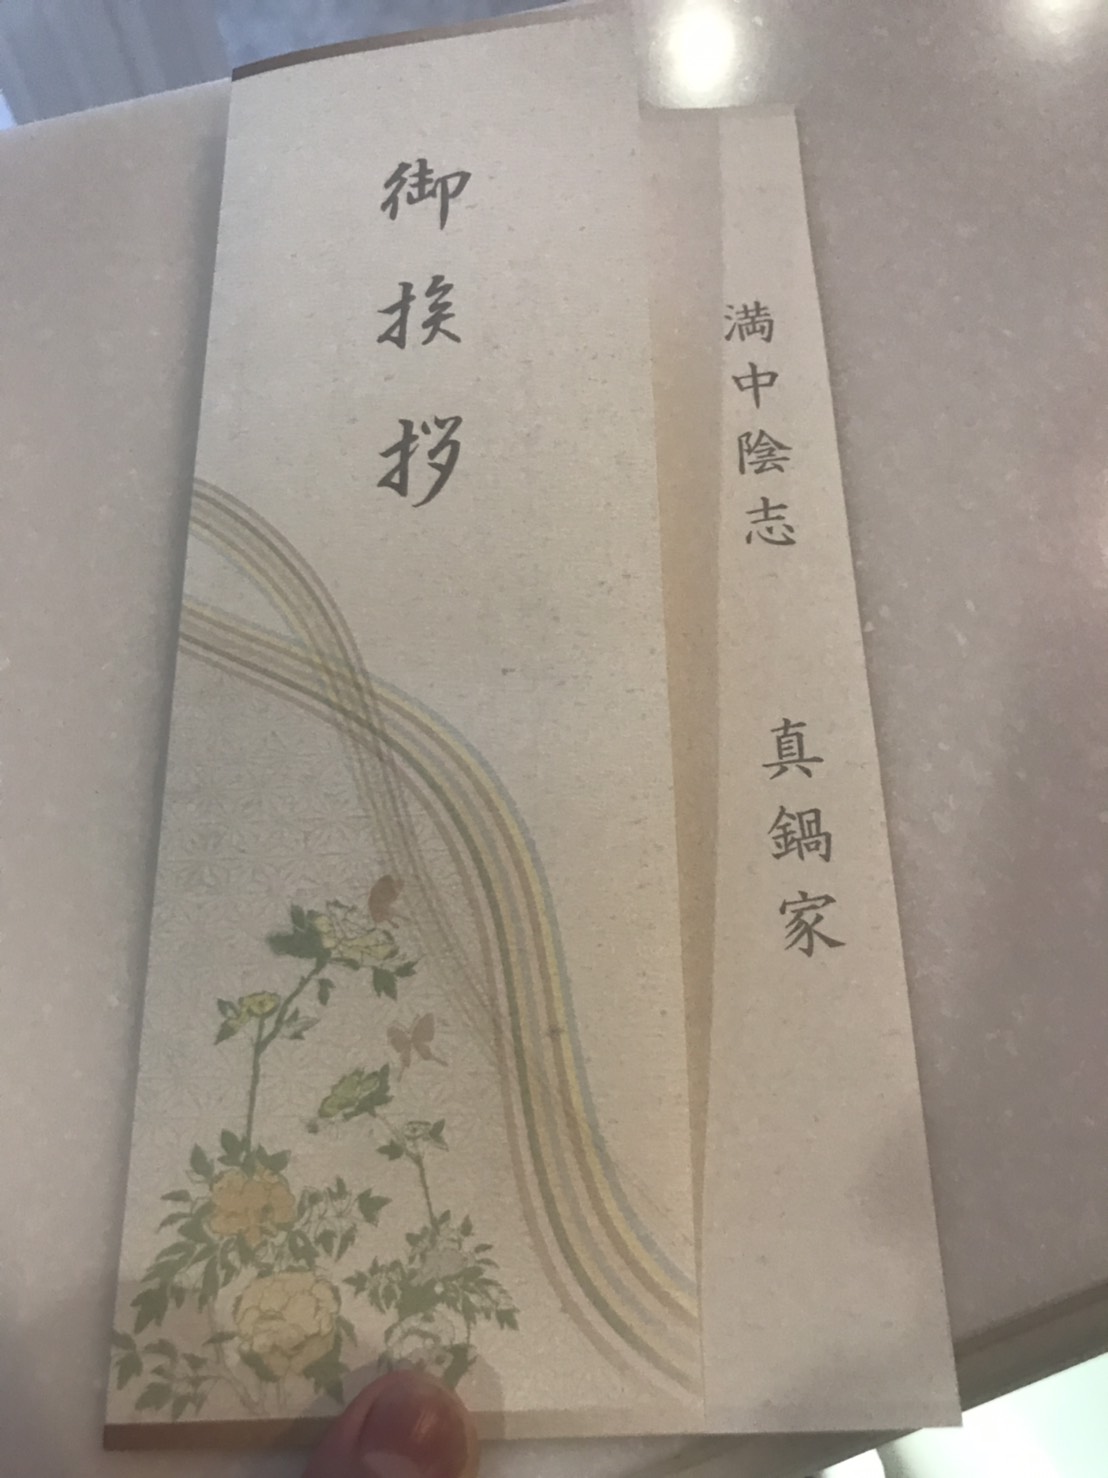 満中陰志 真鍋家
御挨拶